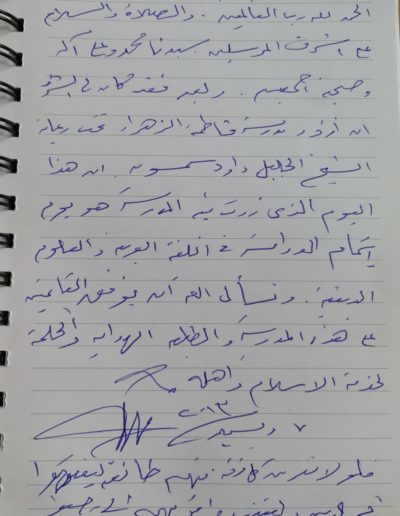 الحمد لله رب العالمين . والصلاة والسلام
ع اشرف المرسلين سيدنا محمد وع آله
وصحبه اجمعين . وبعد فقد كان لي الشرف
ان ازور مدرسة فاطمة الزهراء تحت رعاية
الشيخ الجليل داود سمسويه . ان هذا
اليوم الذي زرت فيه المدرسة هو يوم
إتمام الدراسة في اللغة العربية والعلوم
الدينية . ونسأل الله أن يوفق القائمين
ع هذه المدرسة والطلبة الهداية و
لخدمة الاسلام واهله
٧ ديسمبر ٢٠١٣
فلولا نفر من كل فرقة منهم طائفة ليتفقهوا